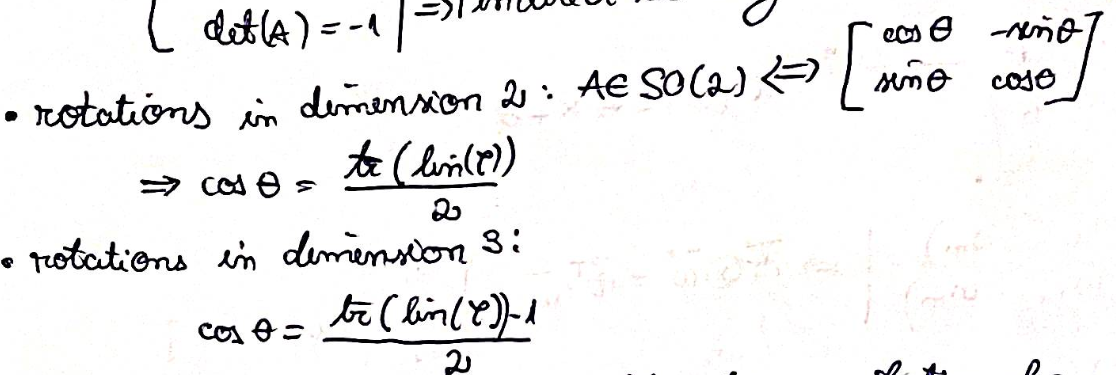 det(A) = -1 =>
• rotations in dimension 2 : A∈ SO(2) <=> [ cos θ -sin θ
sin θ cos θ ]
=> cos θ = tr (lin(φ)) / 2
• rotations in dimension 3 :
cos θ = tr (lin(φ))-1 / 2